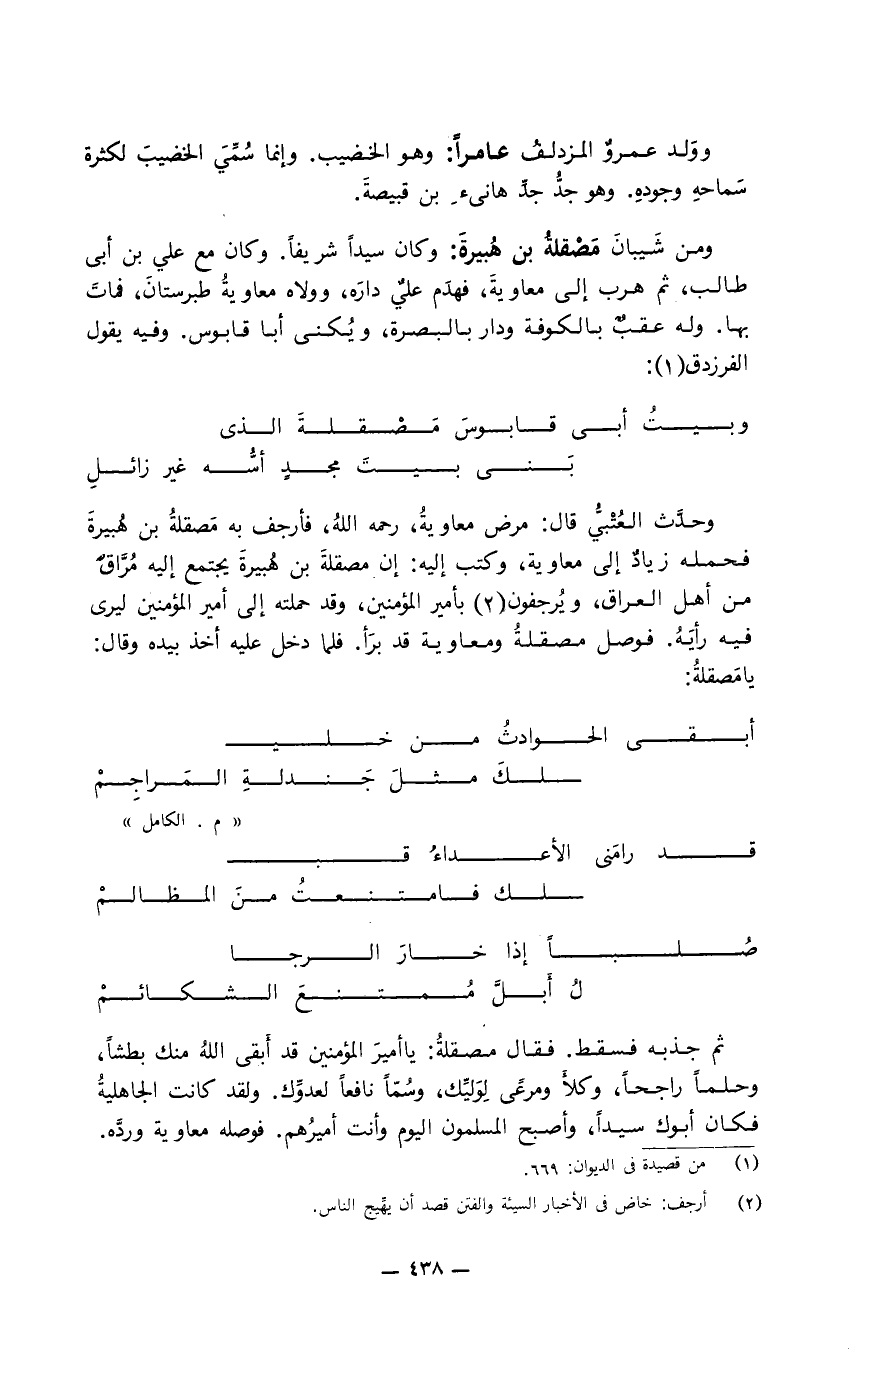 وولد عمروٌ المزدلفُ عامراً: وهو الخضيب. وإنما سُمِّيَ الخضيبَ لكثرة
سَماحهِ وجودهِ. وهو جدُّ جدِّ هانىء بن قبيصةَ.
ومن شَيبانَ مَصْقلةُ بن هُبيرةَ: وكان سيداً شريفاً. وكان مع علي بن أبى
طالب، ثم هرب إلى معاويةَ، فهدَم عليٌ دارَه، وولاه معاويةُ طبرستانَ، فماتَ
بها. وله عقبٌ بالكوفة ودار بالبصرة، ويُكنى أبا قابوس. وفيه يقول
الفرزدق(١):
وبيتُ أبى قابوسَ مَصْقلةَ الذى
بَنى بيتَ مجدٍ أسُّه غير زائلِ
وحدَّث العُتْبىُّ قال: مرض معاويةُ، رحمه اللهُ، فأرجف به مَصقلةُ بن هُبيرةَ
فحمله زيادٌ إلى معاوية، وكتب إليه: إن مصقلةَ بن هُبيرةَ يجتمع إليه مُرَّاقٌ
من أهل العراق، ويُرجفون(٢) بأمير المؤمنين، وقد حملته إلى أمير المؤمنين ليرى
فيه رأيَهُ. فوصل مصقلةُ ومعاوية قد برَأ. فلما دخل عليه أخذ بيده وقال:
يامَصقلةُ:
أبقى الحوادثُ من خليـ
ـلكَ مثلَ جَندلةِ المَراجِمْ
« م . الكامل »
قد رامَنى الأعداءُ قبـ
ـلك فامتنعتُ منَ المظالمْ
صُلباً إذا خارَ الرجا
لُ أَبلَّ مُمتنعَ الشكائمْ
ثم جذبه فسقط. فقال مصقلةُ: ياأميرَ المؤمنين قد أَبقى اللهُ منك بطشاً،
وحلماً راجحاً، وكلأً ومرعًى لِوَليِّك، وسُمّاً نافعاً لعدوِّك. ولقد كانت الجاهليةُ
فكان أبوك سيداً، وأصبح المسلمون اليوم وأنت أميرُهم. فوصله معاوية وردَّه.
(١) من قصيدة فى الديوان: ٦٦٩.
(٢) أرجف: خاض فى الأخبار السيئة والفتن قصد أن يهِّيج الناس.
— ٤٣٨ —